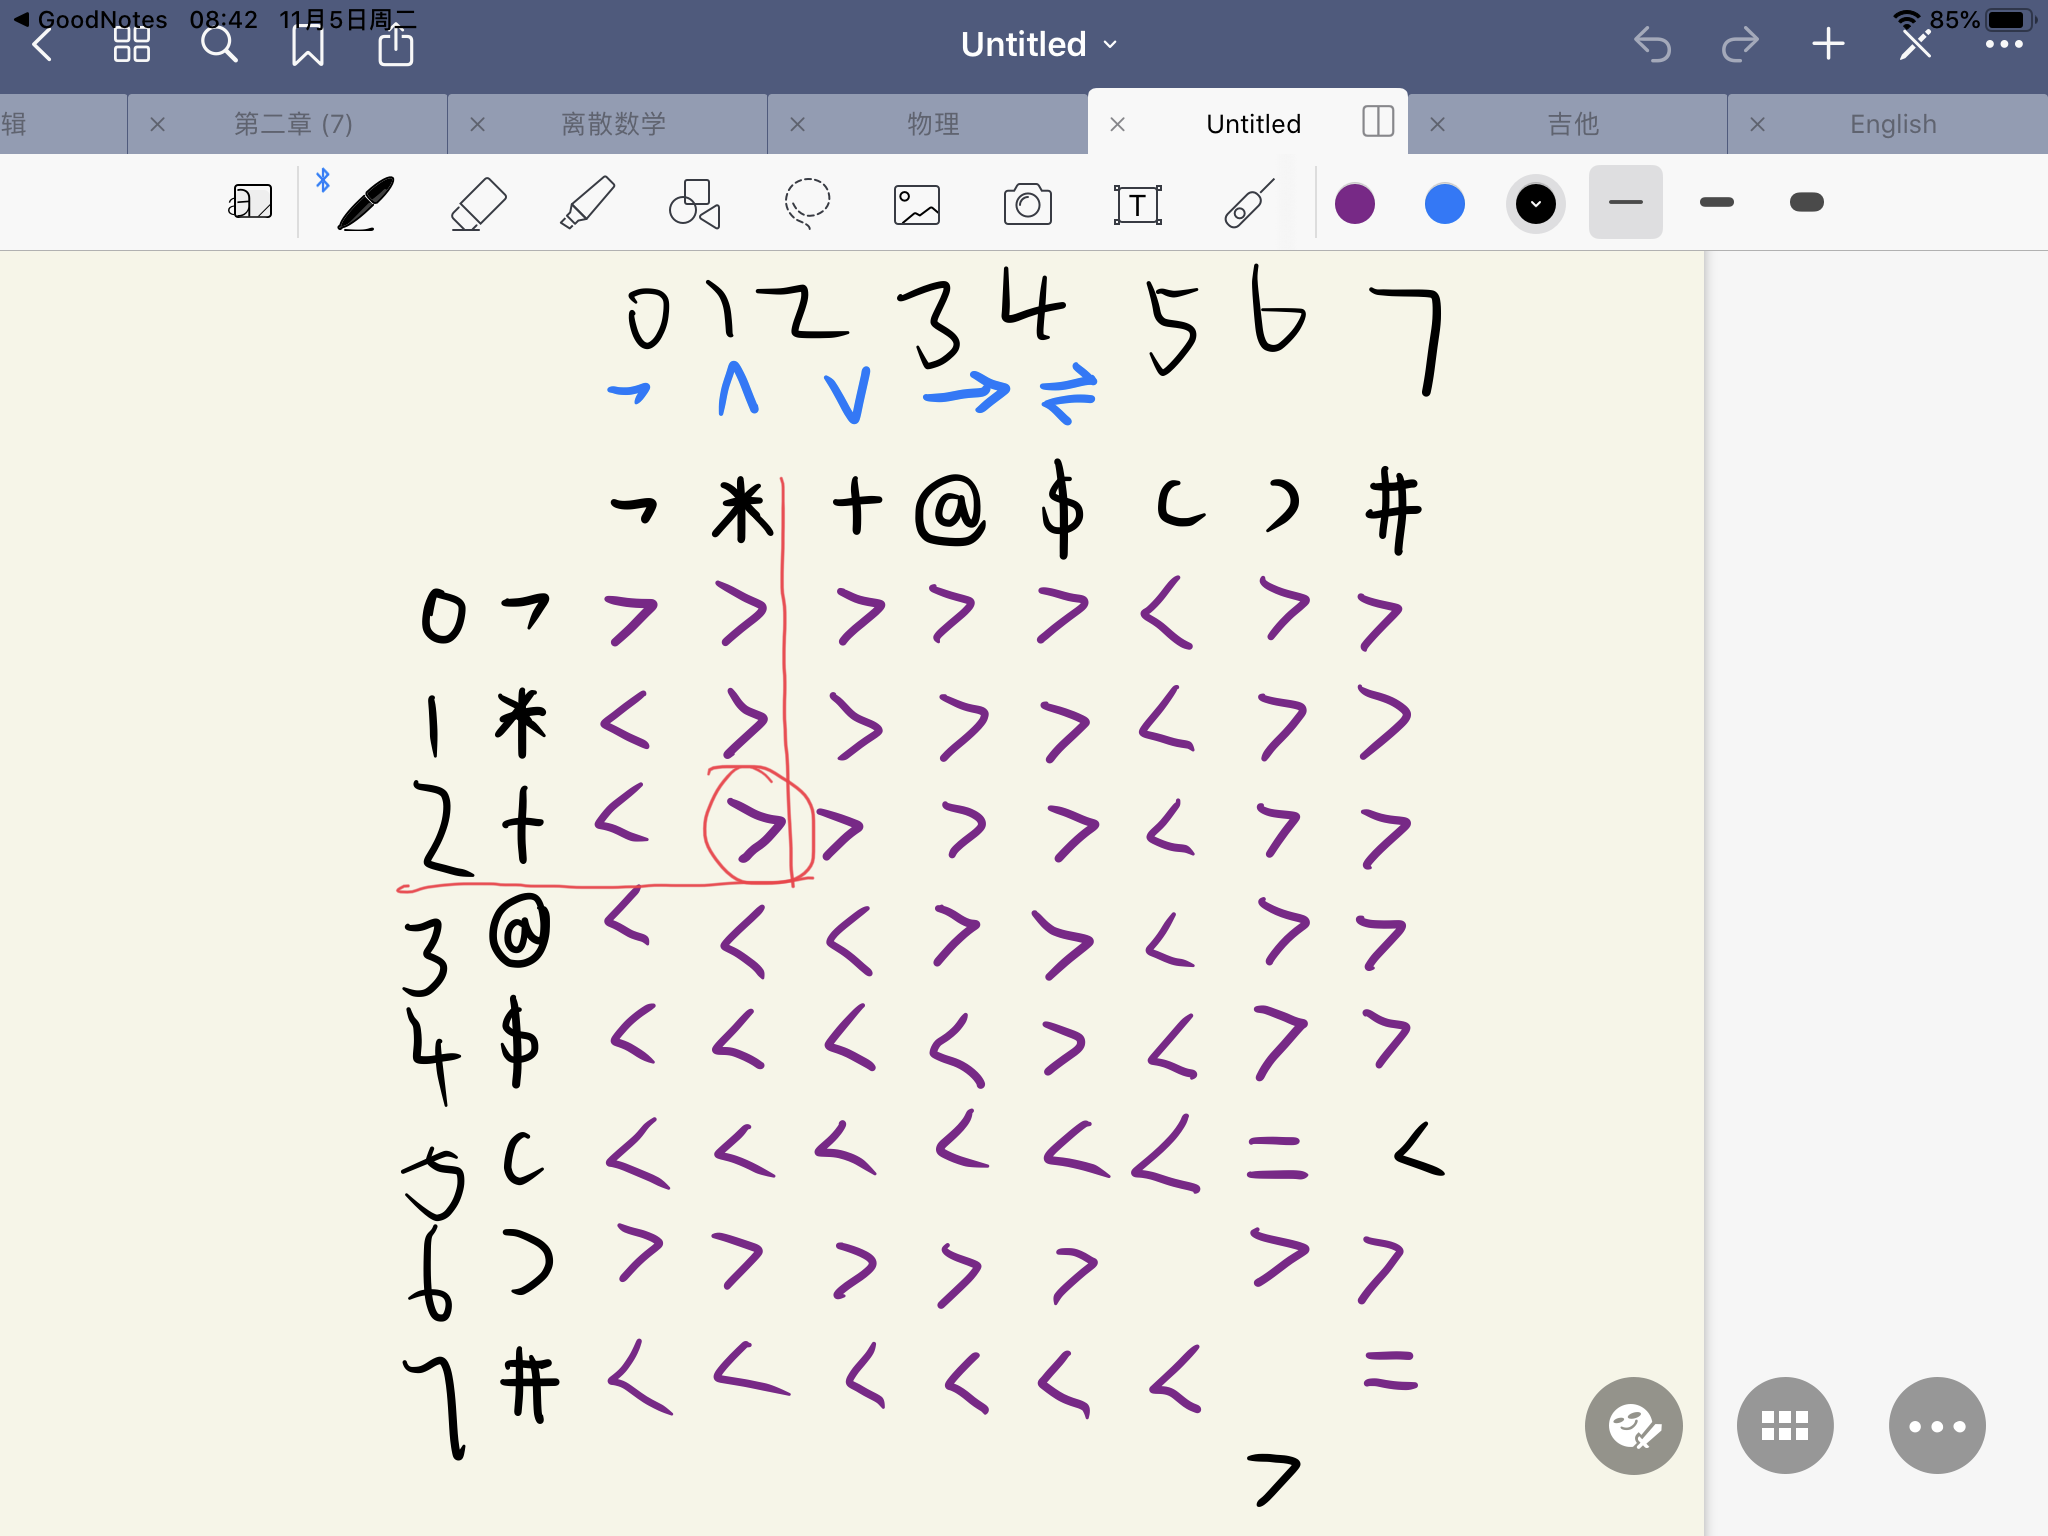 GoodNotes 08:42 11月5日周二 85%
Untitled
辑 第二章 (7) 离散数学 物理 Untitled 吉他 English
T
0 1 2 3 4 5 6 7
¬ ∧ ∨ → ⇌
¬ * + @ $ ( ) #
0 ¬ > > > > > < > >
1 * < > > > > < > >
2 + < > > > > < > >
3 @ < < < > > < > >
4 $ < < < < > < > >
5 ( < < < < < < = <
6 ) > > > > > > >
7 # < < < < < < =
>